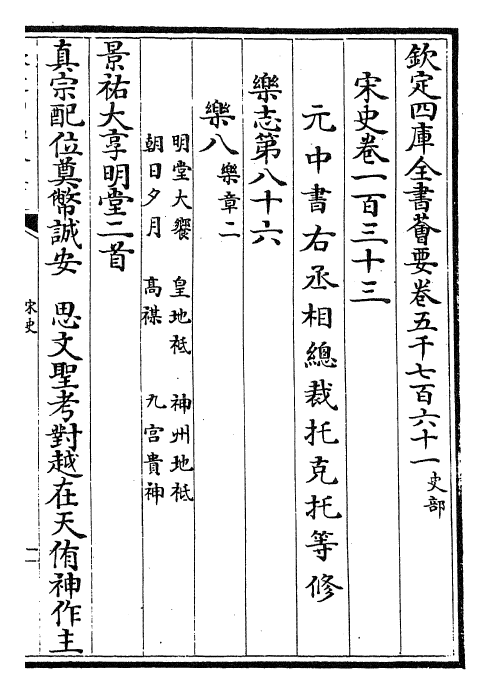 欽定四庫全書薈要卷五千七百六十一 史部
宋史卷一百三十三
元中書右丞相總裁托克托等修
樂志第八十六
樂八 樂章二
明堂大饗 皇地祗 神州地祗
朝日夕月 高禖 九宫貴神
景祐大享明堂二首
真宗配位奠幣誠安 思文聖考對越在天侑神作主
宋史